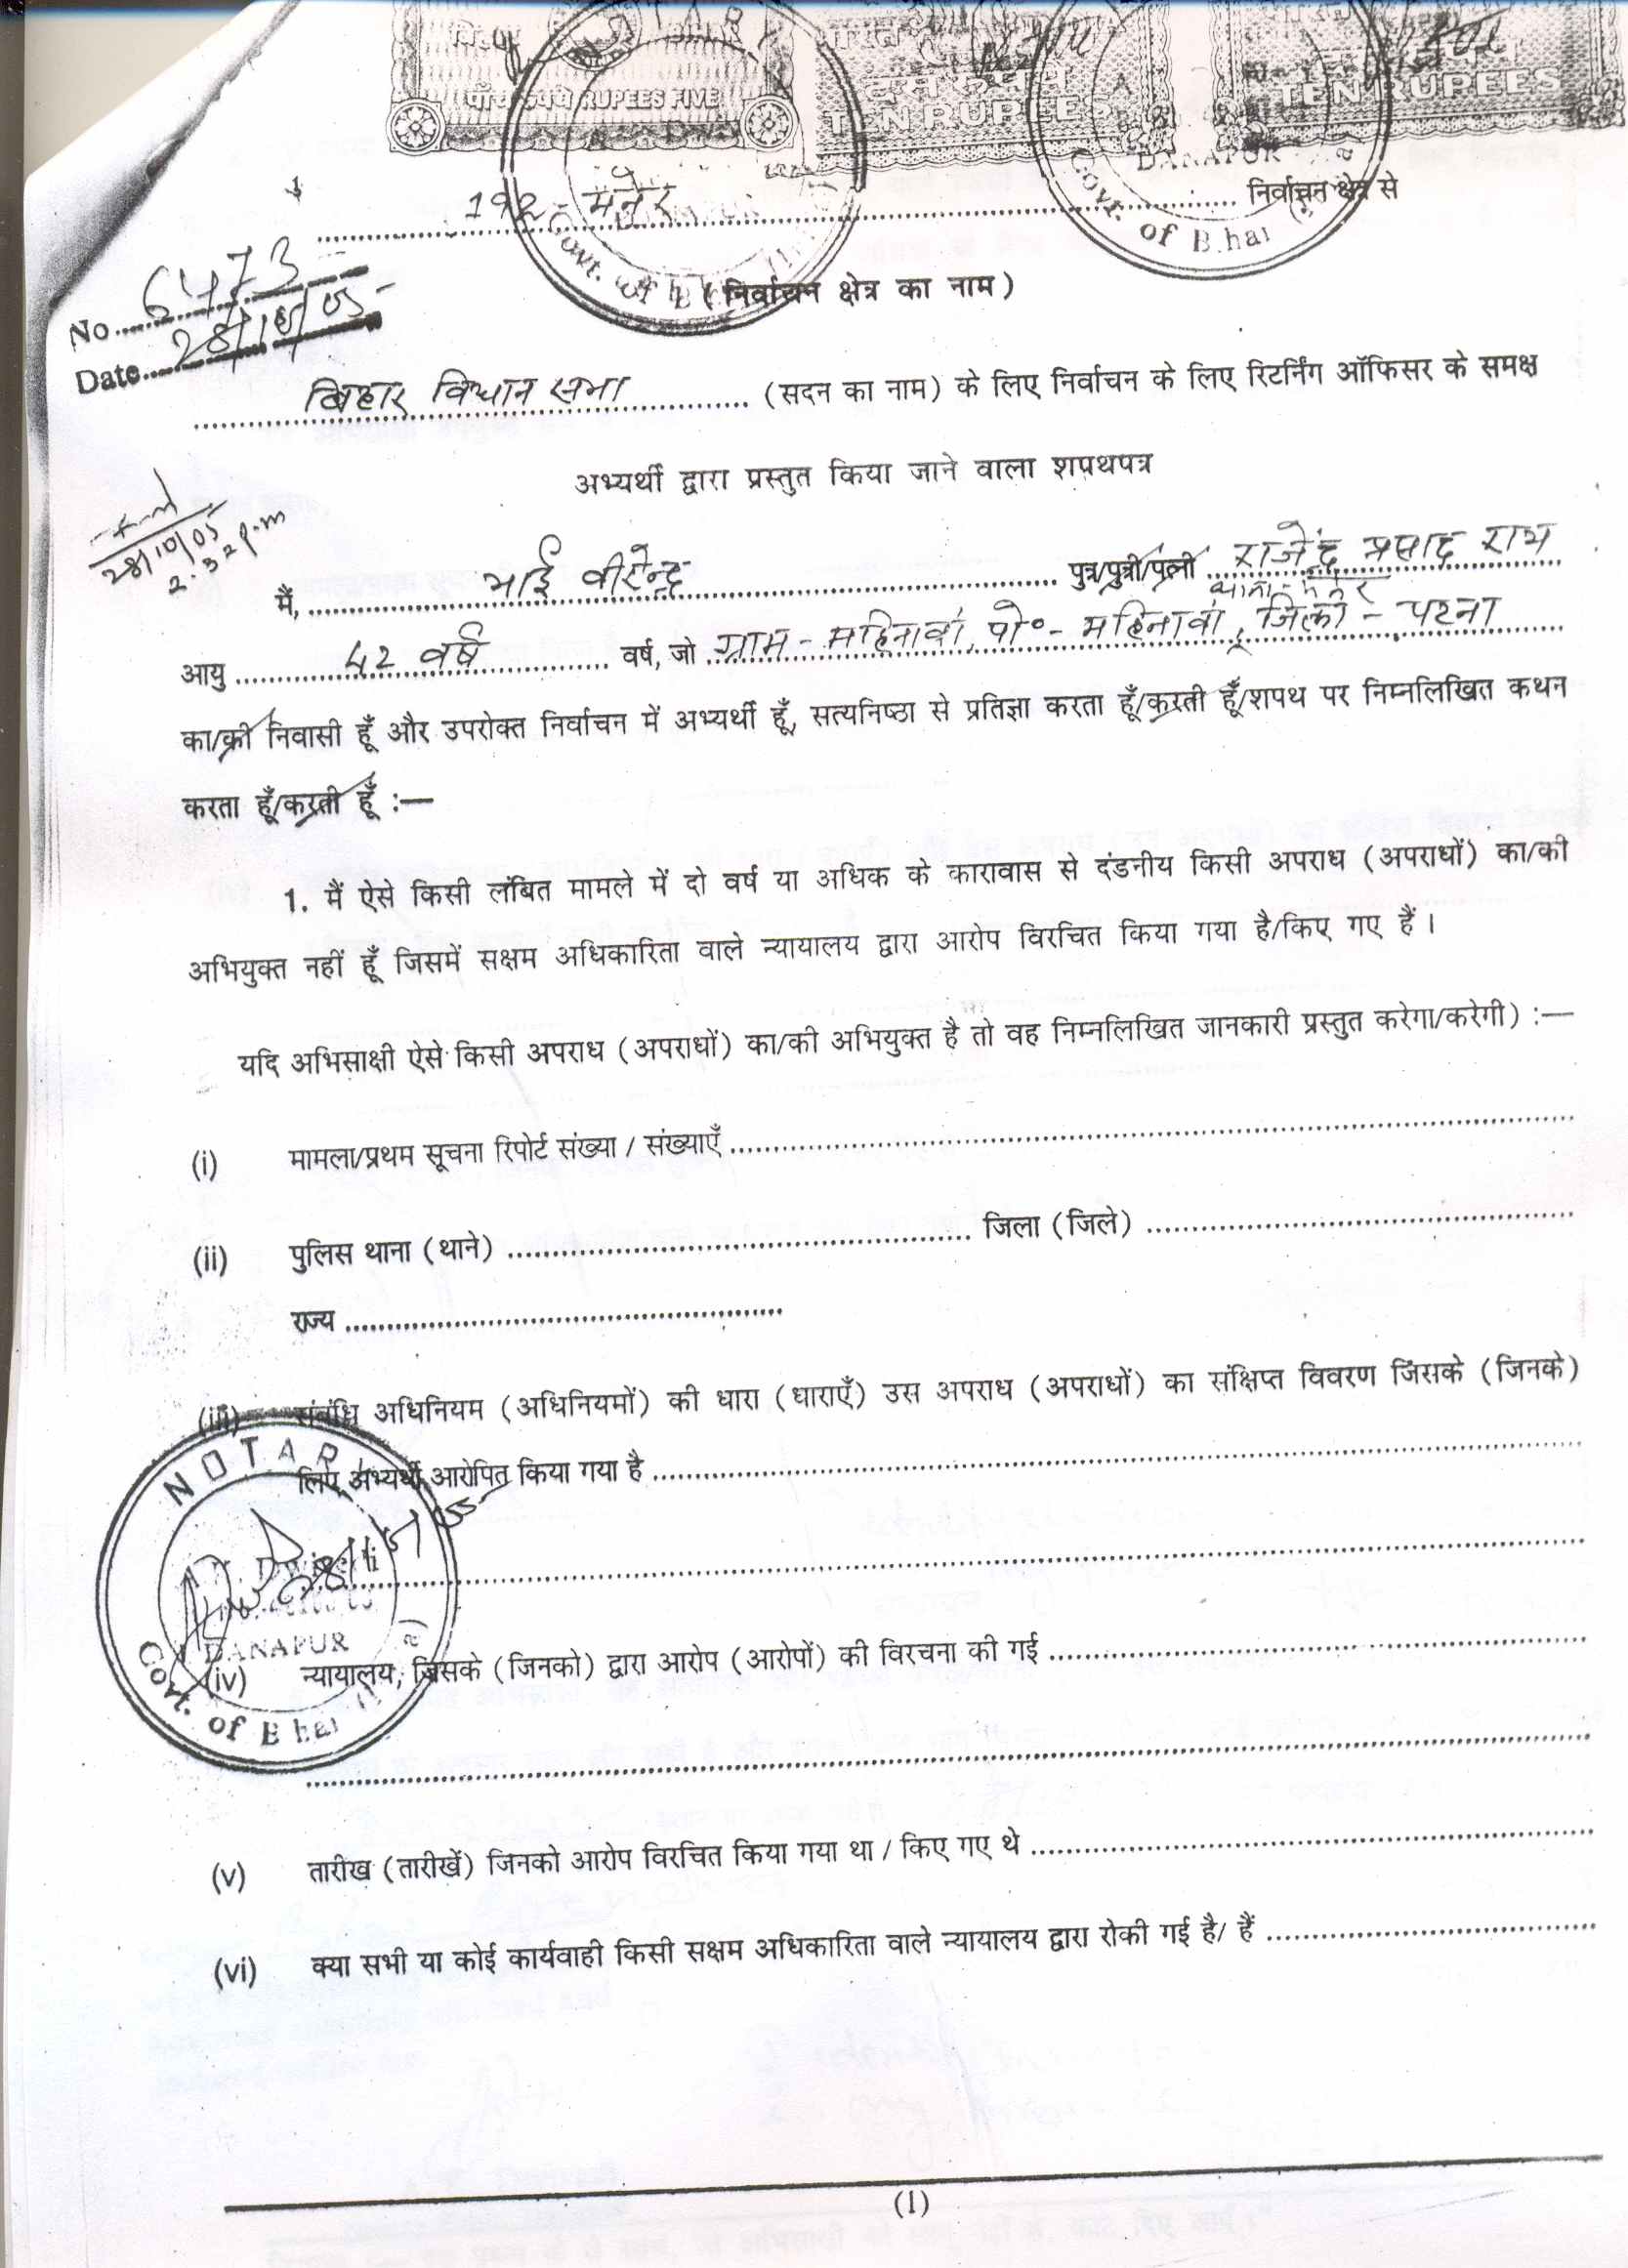 पाँच रुपये RUPEES FIVE
भारत
दस रुपये
TEN RUPEES
TEN RUPEES
DANAPUR
Govt. of B.har
Govt. of B
192 - मनेर .......... निर्वाचन क्षेत्र से
( निर्वाचन क्षेत्र का नाम )
No. 6473
Date 28/10/05
बिहार विधान सभा .......... (सदन का नाम) के लिए निर्वाचन के लिए रिटर्निंग ऑफिसर के समक्ष
अभ्यर्थी द्वारा प्रस्तुत किया जाने वाला शपथपत्र
28/10/05
2.32 p.m
मैं, भाई वीरेन्द्र .......... पुत्र/पुत्री/पत्नी राजेंद्र प्रसाद राय
थाना-मनेर
आयु 42 वर्ष .......... वर्ष, जो ग्राम - महिनावाँ, पो० - महिनावाँ, जिला - पटना
का/की निवासी हूँ और उपरोक्त निर्वाचन में अभ्यर्थी हूँ, सत्यनिष्ठा से प्रतिज्ञा करता हूँ/करती हूँ/शपथ पर निम्नलिखित कथन
करता हूँ/करती हूँ :—
1. मैं ऐसे किसी लंबित मामले में दो वर्ष या अधिक के कारावास से दंडनीय किसी अपराध (अपराधों) का/की
अभियुक्त नहीं हूँ जिसमें सक्षम अधिकारिता वाले न्यायालय द्वारा आरोप विरचित किया गया है/किए गए हैं ।
यदि अभिसाक्षी ऐसे किसी अपराध (अपराधों) का/की अभियुक्त है तो वह निम्नलिखित जानकारी प्रस्तुत करेगा/करेगी) :—
(i) मामला/प्रथम सूचना रिपोर्ट संख्या / संख्याएँ ..........
(ii) पुलिस थाना (थाने) .......... जिला (जिले) ..........
राज्य ..........
(iii) संबंधि अधिनियम (अधिनियमों) की धारा (धाराएँ) उस अपराध (अपराधों) का संक्षिप्त विवरण जिसके (जिनके)
लिए अभ्यर्थी आरोपित किया गया है ..........
NOTAR
DANAPUR
Govt. of B har
(iv) न्यायालय, जिसके (जिनको) द्वारा आरोप (आरोपों) की विरचना की गई ..........
(v) तारीख (तारीखें) जिनको आरोप विरचित किया गया था / किए गए थे ..........
(vi) क्या सभी या कोई कार्यवाही किसी सक्षम अधिकारिता वाले न्यायालय द्वारा रोकी गई है/ हैं ..........
(1)